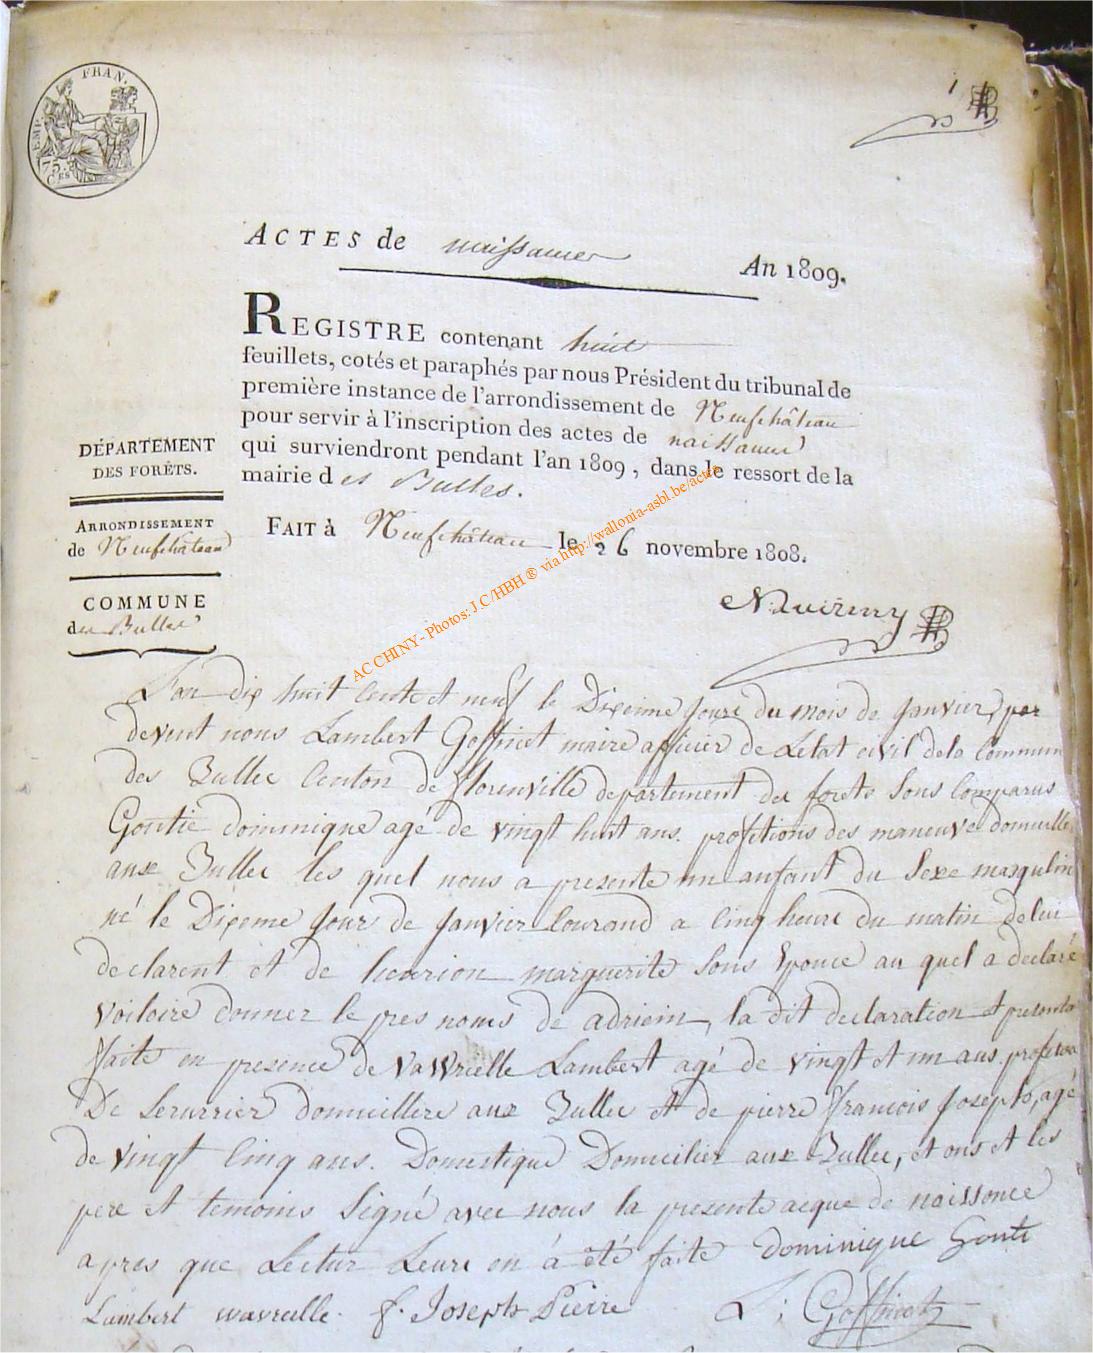 EMP. FRAN.
75. C.ES
1
ACTES de naissances
An 1809.
REGISTRE contenant huit
feuillets, cotés et paraphés par nous Président du tribunal de
première instance de l'arrondissement de Neufchâteau
pour servir à l'inscription des actes de naissances
qui surviendront pendant l'an 1809, dans le ressort de la
mairie des Bulles.
FAIT à Neufchâteau le 26 novembre 1808.
DÉPARTEMENT
DES FORÊTS.
ARRONDISSEMENT
de Neufchâteau
COMMUNE
des Bulles
AC CHINY- Photos: J.C/HBH ® via http://wallonia-asbl.be/actes
L'an dix huit Cents et neuf le Dixeime Jour du mois de Janvier, par
devent nous Lambert Goffinet maire afficier de Letat civil dela Commun
des Bulles Canton de florenville departement des forets Sons Comparus
Goutie dominique agé de vingt huit ans. profitions des maneuve domicille
aux Bulles les quel nous a presente un anfant du Sexe masqulin
né le Dixeme Jour de Janvier Courand a Cinq heure du matin delui
declarent et de marguerite Sons Epouce au quel a declaré
voiloire donner le pres noms de adriein, la dit declaration et presenta
faite en presence de vawrielle Lambert agé de vingt et un ans.
De Serurrier domicillere aux Bulles et de pierre francois Joseph, agé
de vingt Cinq ans. Domestique Domicilier aux Bulles, et ons et les
pere et temoins Signé avec nous la presente acque de naissonce
apres que Lectur Leure en á été faite dominique Gouti
Lambert wavreille. f. Joseph Pierre L; Goffinet